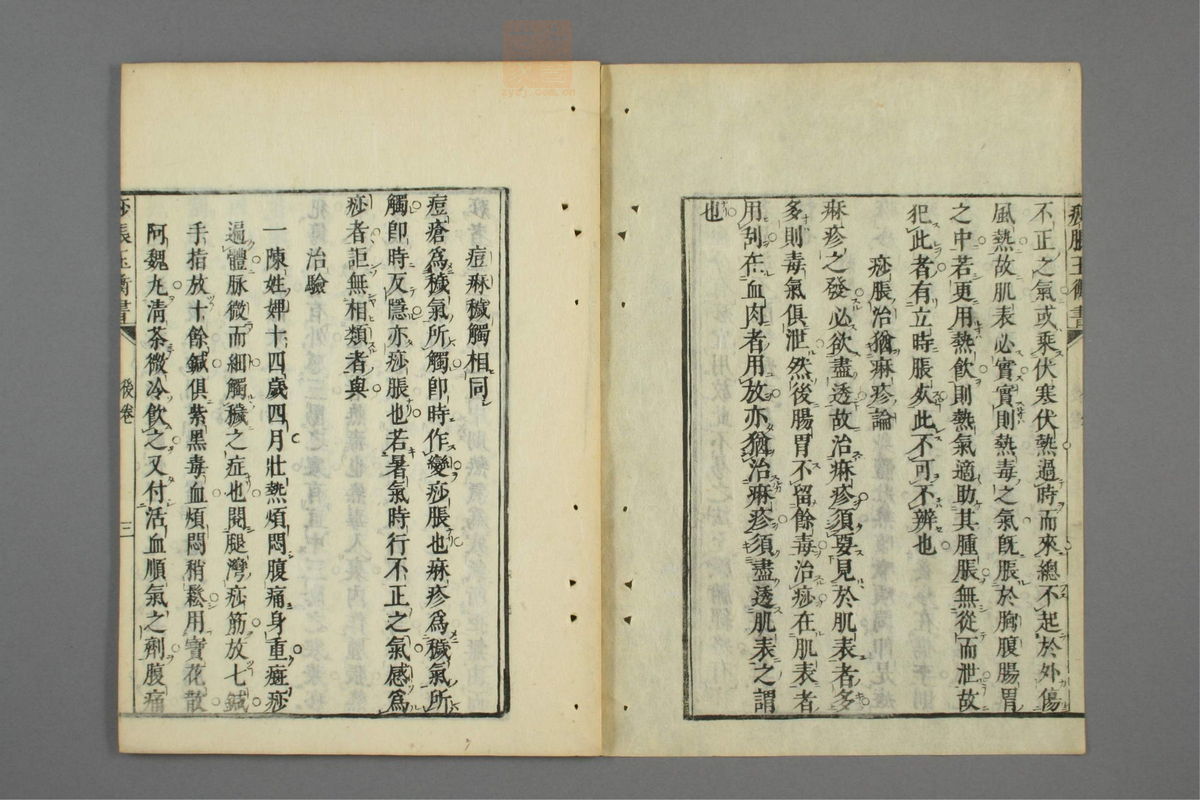 痧脹玉衡書
不正之氣或乘伏寒伏熱過時而來總不起於外傷
風熱故肌表必實實則熱毒之氣旣脹於胸腹腸胃
之中若更用熱飲則熱氣適助其腫脹無從而泄故
犯此者有立時脹
此不可不辨也
痧脹治猶痳疹論
痳疹之發必欲盡透故治痳疹須要見於肌表者多
多則毒氣俱泄然後腸胃不留餘毒治痧在肌表者
用刮在血肉者用放亦猶治痳疹須盡透肌表之謂
也
痘痳穢觸相同
痘瘡爲穢氣所觸卽時作變痧脹也痳疹爲穢氣所
觸卽時反隱亦痧脹也若暑氣時行不正之氣感爲
痧者詎無相類者與
治驗
一陳姓婢十四歲四月壯熱煩悶腹痛身重斑痧
遍體脉微而細觸穢之症也閱腿灣痧筋放七鍼
手指放十餘鍼俱紫黑毒血煩悶稍鬆用寶花散
阿魏丸清茶微冷飲之又付活血順氣之劑腹痛
痧脹玉衡書
後卷
三